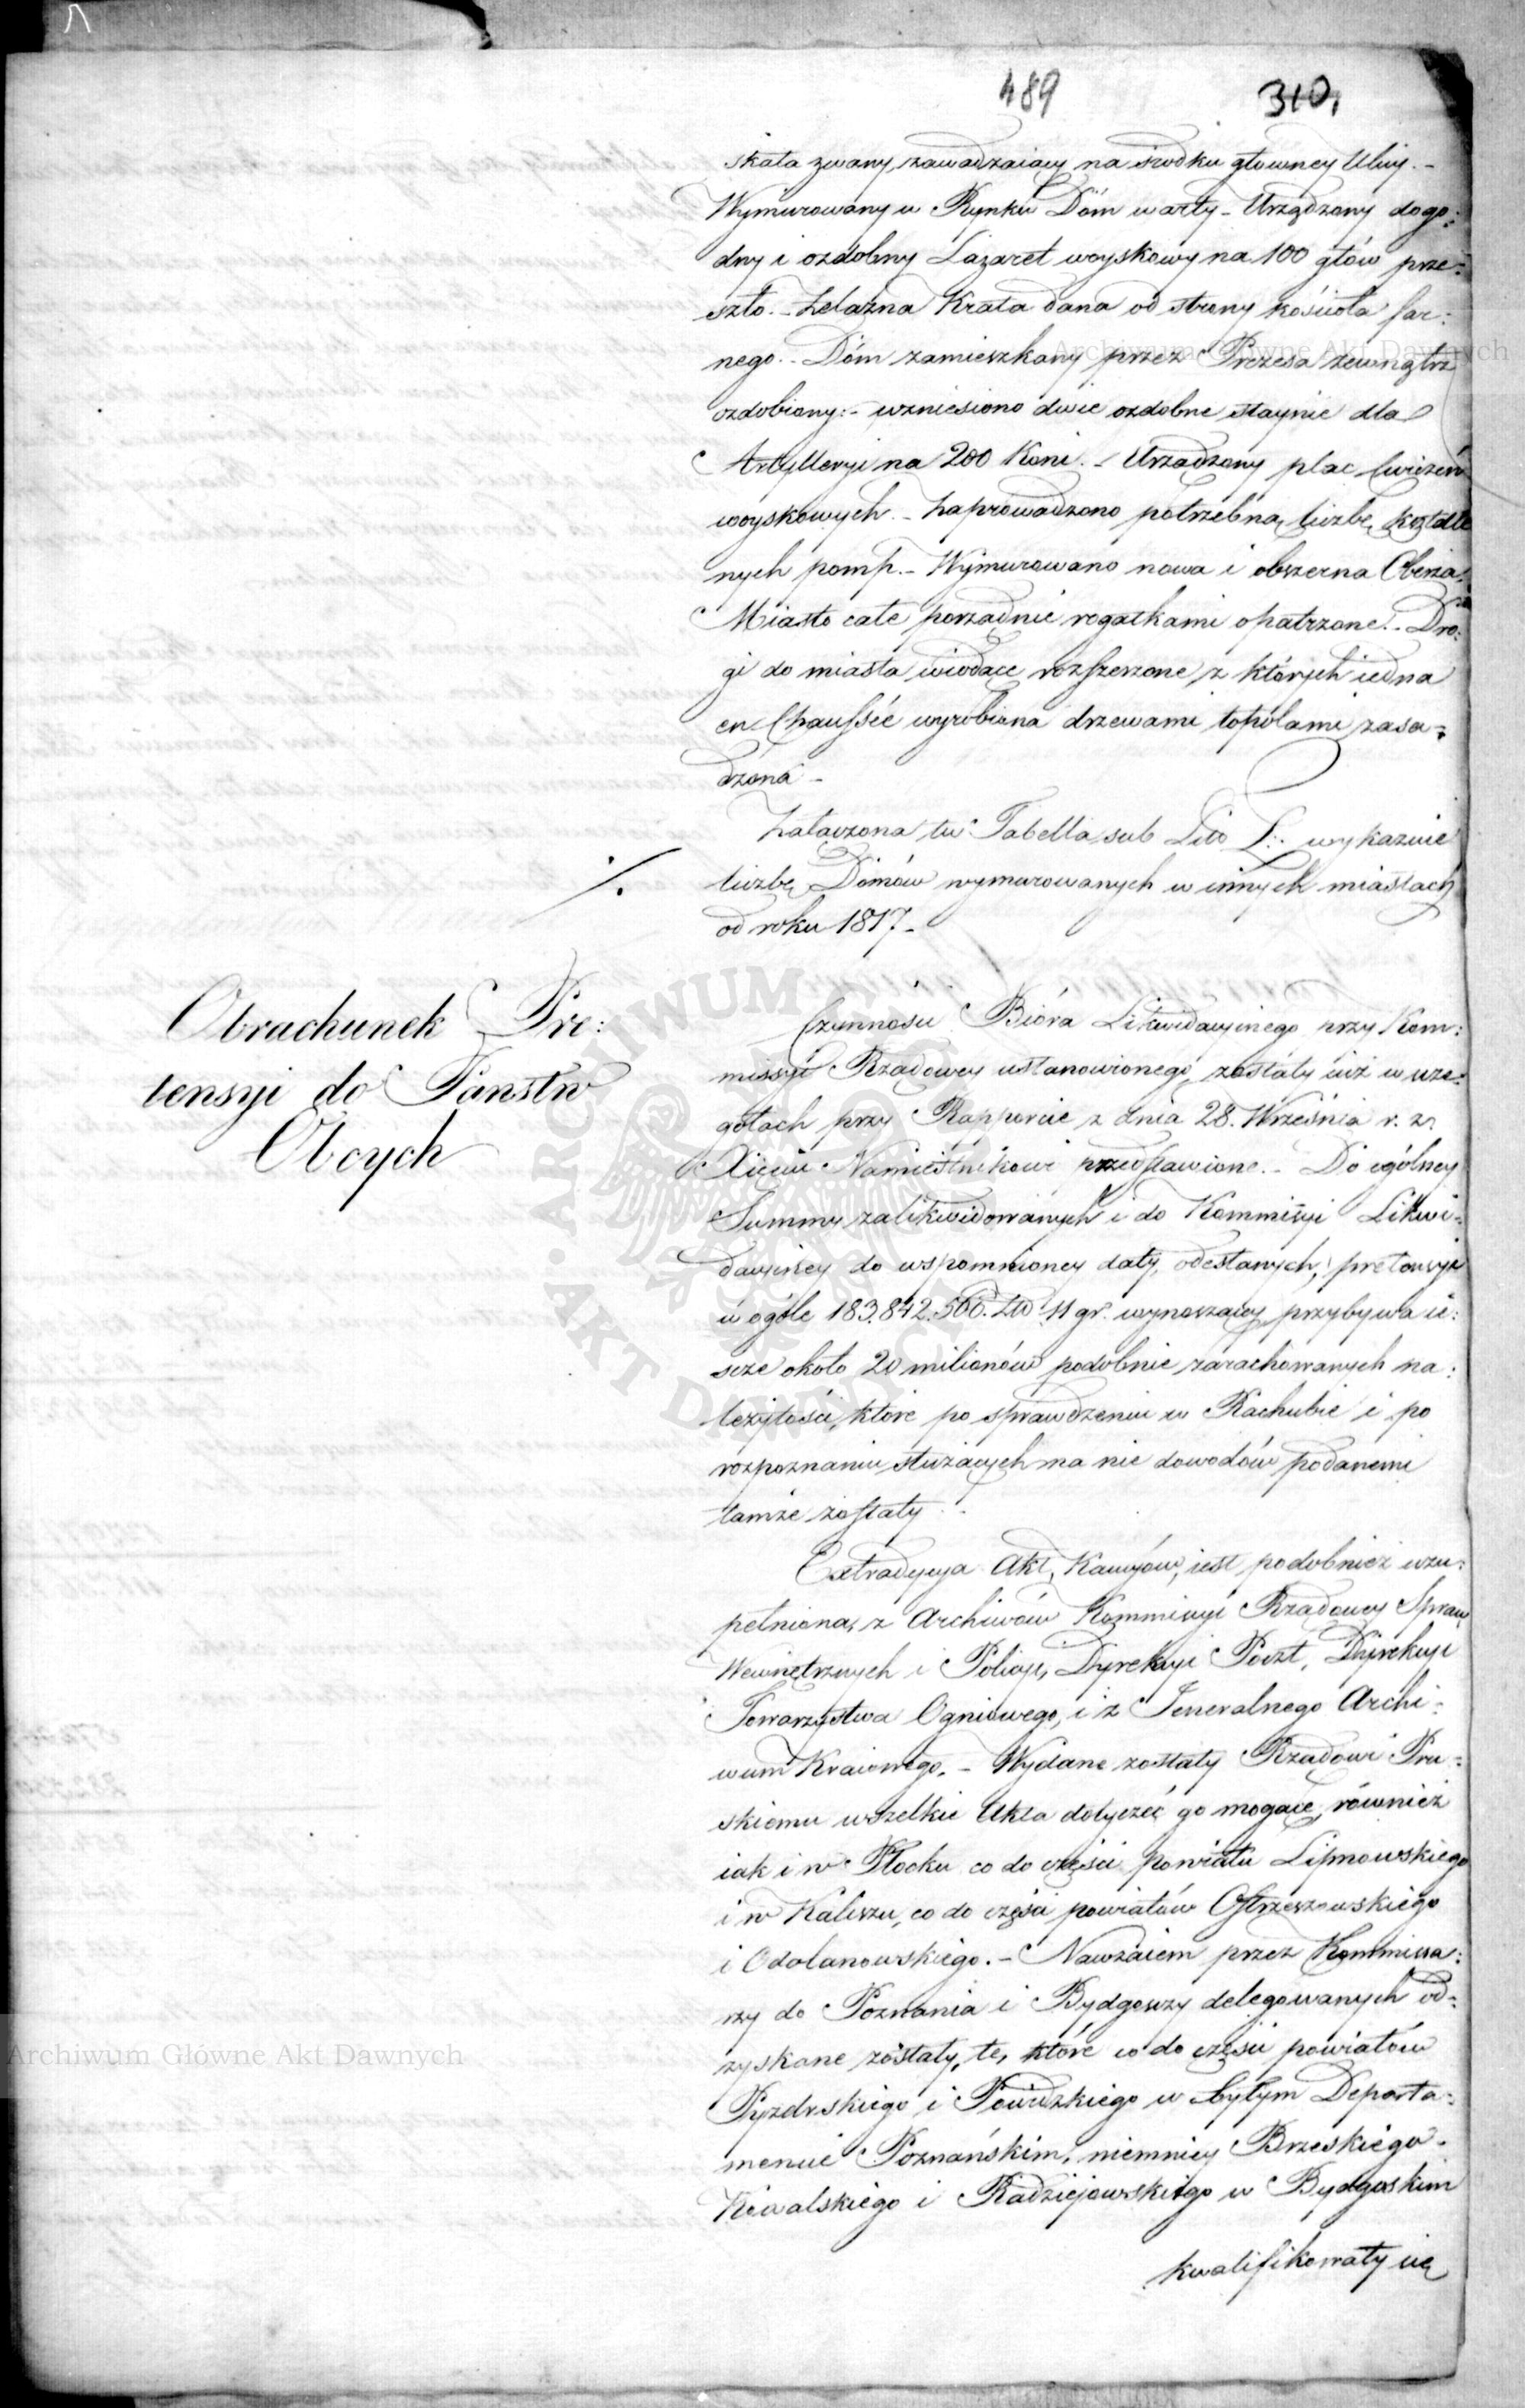 489 310,
skała zwany, zawadzaiący na środku główney Ulicy. -
Wymurowany w Rynku Dóm warty - Urządzony dogo:
dny i ozdobny Lazaret woyskowy na 100 głów prze:
szło. - Żelazna Krata dana od strony kościoła far:
nego. - Dóm zamieszkany przez Prezesa zewnątrz
ozdobiony: - wzniesiono dwie ozdobne staynie dla
Artylleryi na 200 Koni. - Urządzony plac ćwiczeń
woyskowych. - Zaprowadzono potrzebną liczbę kształt
nych pomp. - Wymurowano nowa i obszerna Oberża.
Miasto całe porządnie rogatkami opatrzone. - Dro:
gi do miasta wiodące rozszerzone, z których iedna
en Chaussée wyrobiona drzewami topolami zasa:
dzona -
Załączona tu Tabella sub Litt L: wykazuie
liczbę Domów wymurowanych w innych miastach
od roku 1817 -
Obrachunek Pre:
tensyi do Państw
Obcych
Czynności Bióra Likwidacyinego przy Kom:
missyi Rządowey ustanowionego, zostały iuż w szcze:
gółach przy Rapporcie z dnia 28. Września r. z.
Xięciu Namiestnikowi przedstawione. - Do ogólney
Summy zalikwidowanych i do Kommissyi Likwi:
dacyiney do wspomnioney daty, odesłanych, pretensyi
w ogóle 183.842.506. Złł 11 gr. wynoszącey przybywa ie:
szcze około 20 milionów podobnie zarachowanych na:
leżytości, które po sprawdzeniu w Rachubie i po
rozpoznaniu służących na nie dowodów podanemi
tamże zostały.
Extradycya Akt, Kaucyów, iest podobnież uzu:
pełniona, z Archiwów Kommissyi Rządowey Spraw
Wewnętrznych i Policyi, Dyrekcyi Poczt, Dyrekcyi
Towarzystwa Ogniowego, i z Jeneralnego Archi:
wum Kraiowego. - Wydane zostały Rządowi Pru:
skiemu wszelkie Akta dotyczeć go mogące, również
iak i w Płocku co do części powiatu Lipnowskiego
i w Kaliszu, co do części powiatów Ostrzeszowskiego
i Odolanowskiego. - Nawzaiem przez Kommissa:
rzy do Poznania i Bydgoszczy delegowanych od:
zyskane zostały, te, które co do części powiatów
Pyzdrskiego i Powidzkiego w byłym Departa:
mencie Poznańskim, niemniey Brzeskiego -
Kowalskiego i Radziejowskiego w Bydgoskim
kwalifikowały się
Archiwum Główne Akt Dawnych